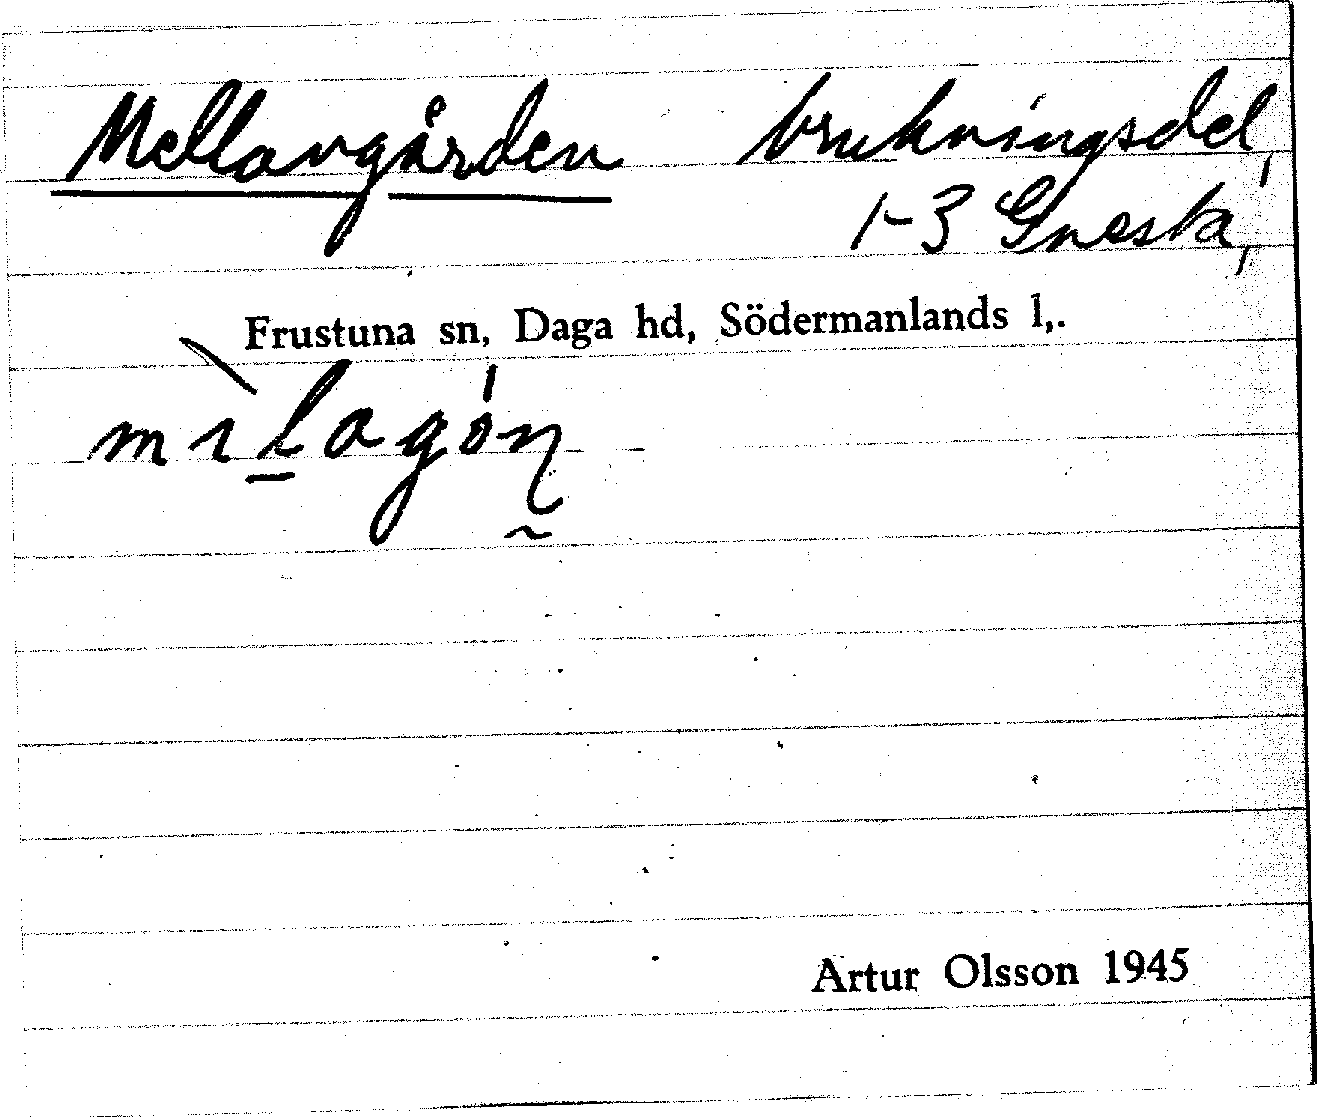 Mellangården brukningsdel,
1-3 Gnesta,
Frustuna sn, Daga hd, Södermanlands l,.
Artur Olsson 1945